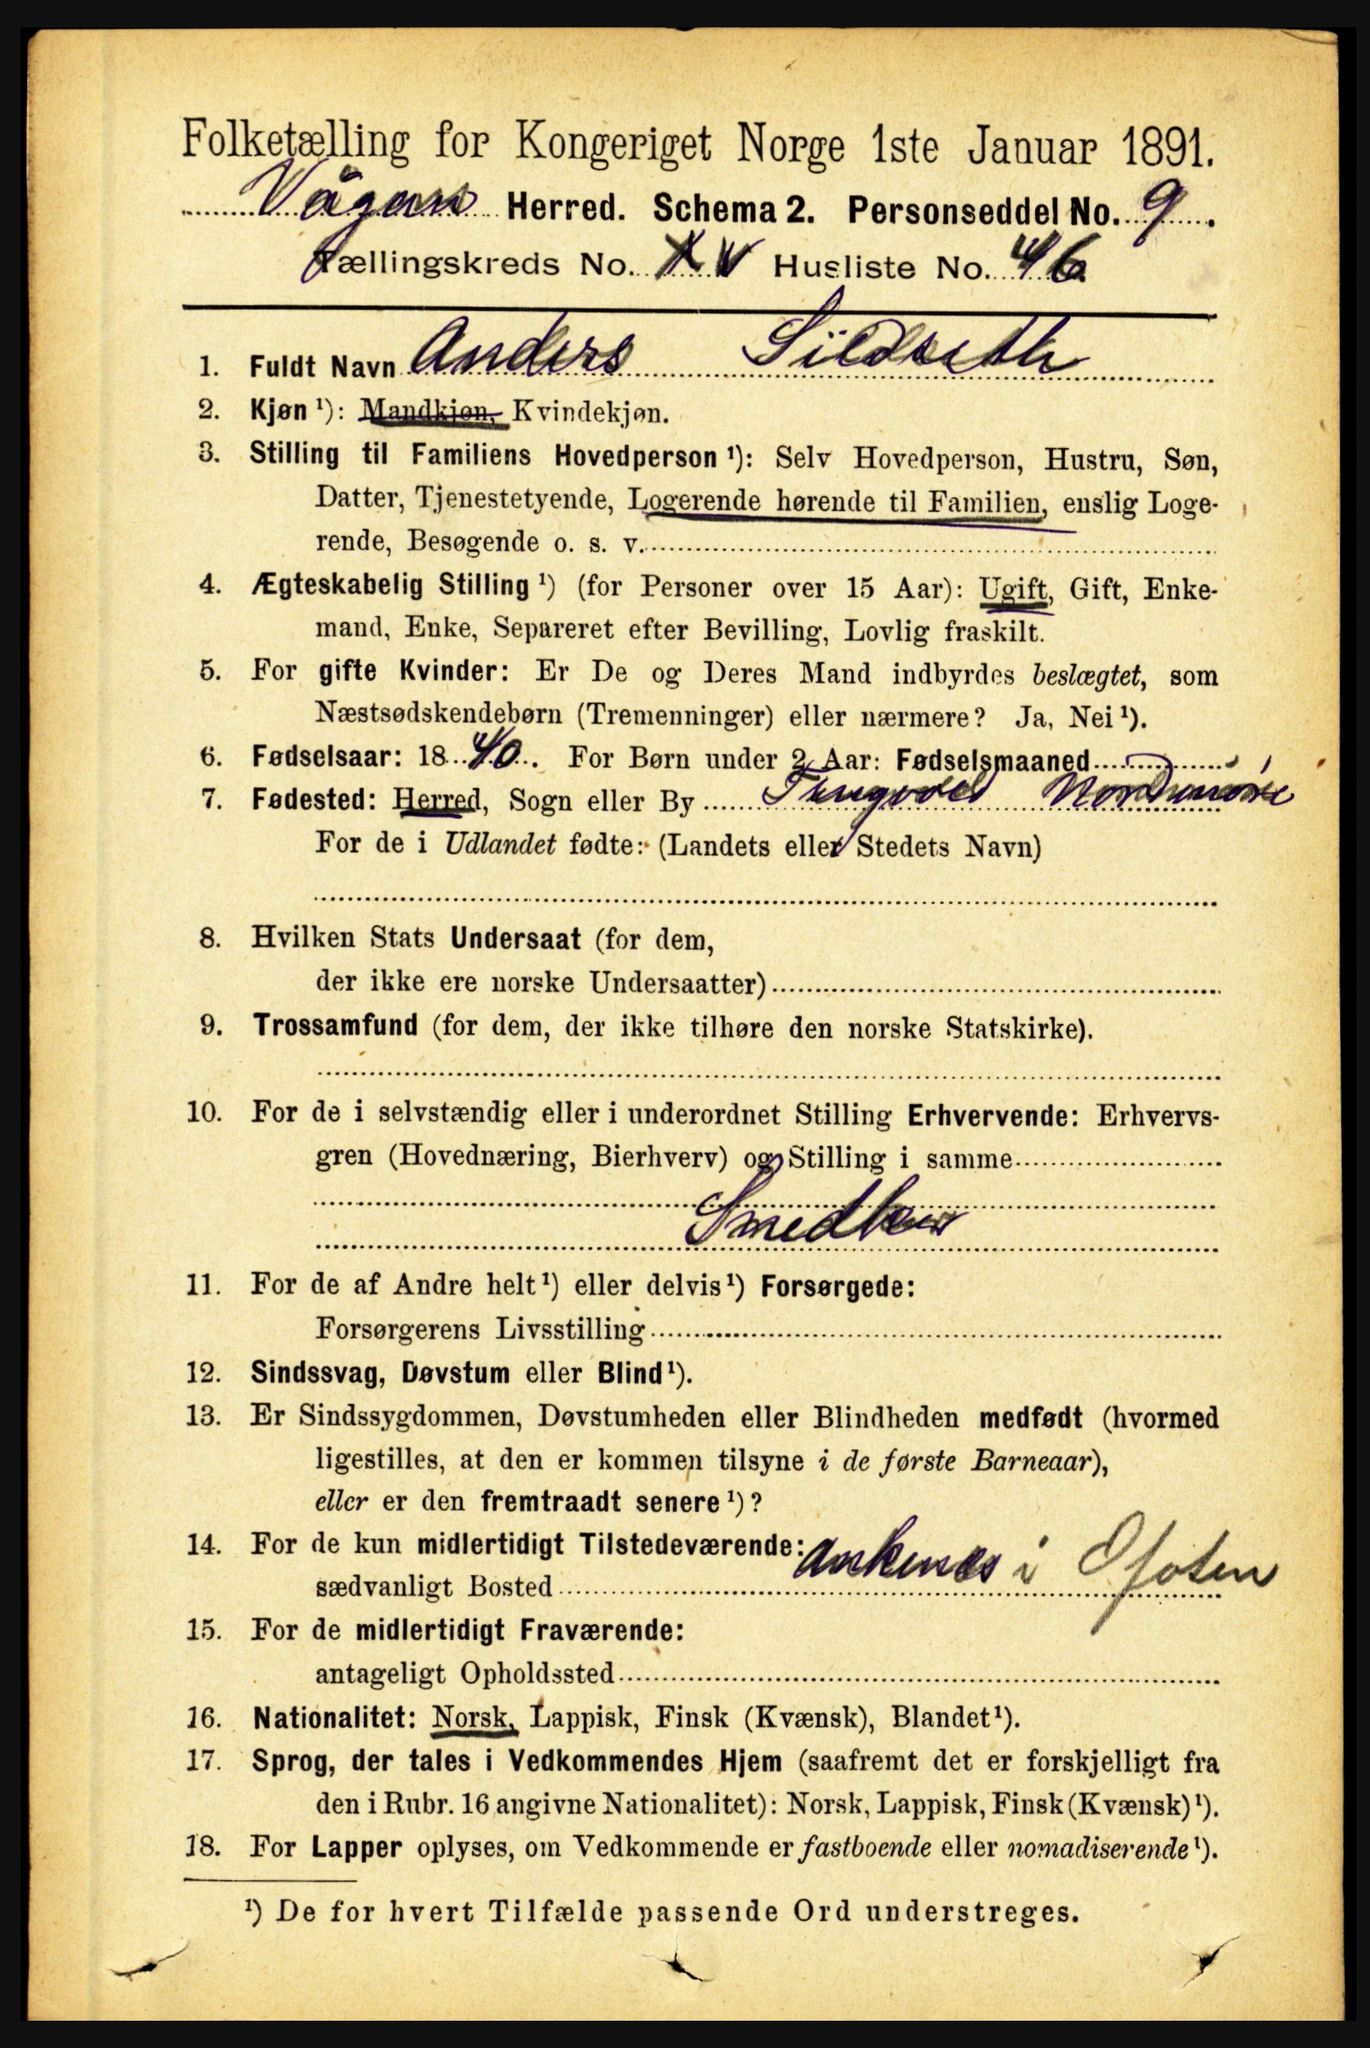 Folketælling for Kongeriget Norge 1ste Januar 1891.
Vågan Herred. Schema 2. Personseddel No. 9.
Tællingskreds No. XV Husliste No. 46
1. Fuldt Navn Anders Sildseth
2. Kjøn ¹): Mandkjøn, Kvindekjøn.
3. Stilling til Familiens Hovedperson ¹): Selv Hovedperson, Hustru, Søn,
Datter, Tjenestetyende, Logerende hørende til Familien, enslig Loge-
rende, Besøgende o. s. v.
4. Ægteskabelig Stilling ¹) (for Personer over 15 Aar): Ugift, Gift, Enke-
mand, Enke, Separeret efter Bevilling, Lovlig fraskilt.
5. For gifte Kvinder: Er De og Deres Mand indbyrdes beslægtet, som
Næstsødskendebørn (Tremenninger) eller nærmere? Ja, Nei ¹).
6. Fødselsaar: 1840. For Børn under 2 Aar: Fødselsmaaned
7. Fødested: Herred, Sogn eller By Tingvold Nordmøre
For de i Udlandet fødte: (Landets eller Stedets Navn)
8. Hvilken Stats Undersaat (for dem,
der ikke ere norske Undersaatter)
9. Trossamfund (for dem, der ikke tilhøre den norske Statskirke).
10. For de i selvstændig eller i underordnet Stilling Erhvervende: Erhvervs-
gren (Hovednæring, Bierhverv) og Stilling i samme
11. For de af Andre helt ¹) eller delvis ¹) Forsørgede:
Forsørgerens Livsstilling
12. Sindssvag, Døvstum eller Blind ¹).
13. Er Sindssygdommen, Døvstumheden eller Blindheden medfødt (hvormed
ligestilles, at den er kommen tilsyne i de første Barneaar),
eller er den fremtraadt senere ¹)?
14. For de kun midlertidigt Tilstedeværende: Ankenes i Ofoten
sædvanligt Bosted
15. For de midlertidigt Fraværende:
antageligt Opholdssted
16. Nationalitet: Norsk, Lappisk, Finsk (Kvænsk), Blandet ¹).
17. Sprog, der tales i Vedkommendes Hjem (saafremt det er forskjelligt fra
den i Rubr. 16 angivne Nationalitet): Norsk, Lappisk, Finsk (Kvænsk) ¹).
18. For Lapper oplyses, om Vedkommende er fastboende eller nomadiserende ¹).
¹) De for hvert Tilfælde passende Ord understreges.